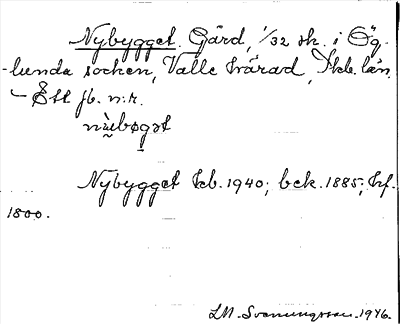 Nybygget. Gård, 1/32 sk. i Ög-
-lunda socken, Valle härad, Skb. län.
– Ett fb. n:r.
Nybygget kb. 1940; bek. 1885; hf.
1800.
LM. Svenungsson. 1946.